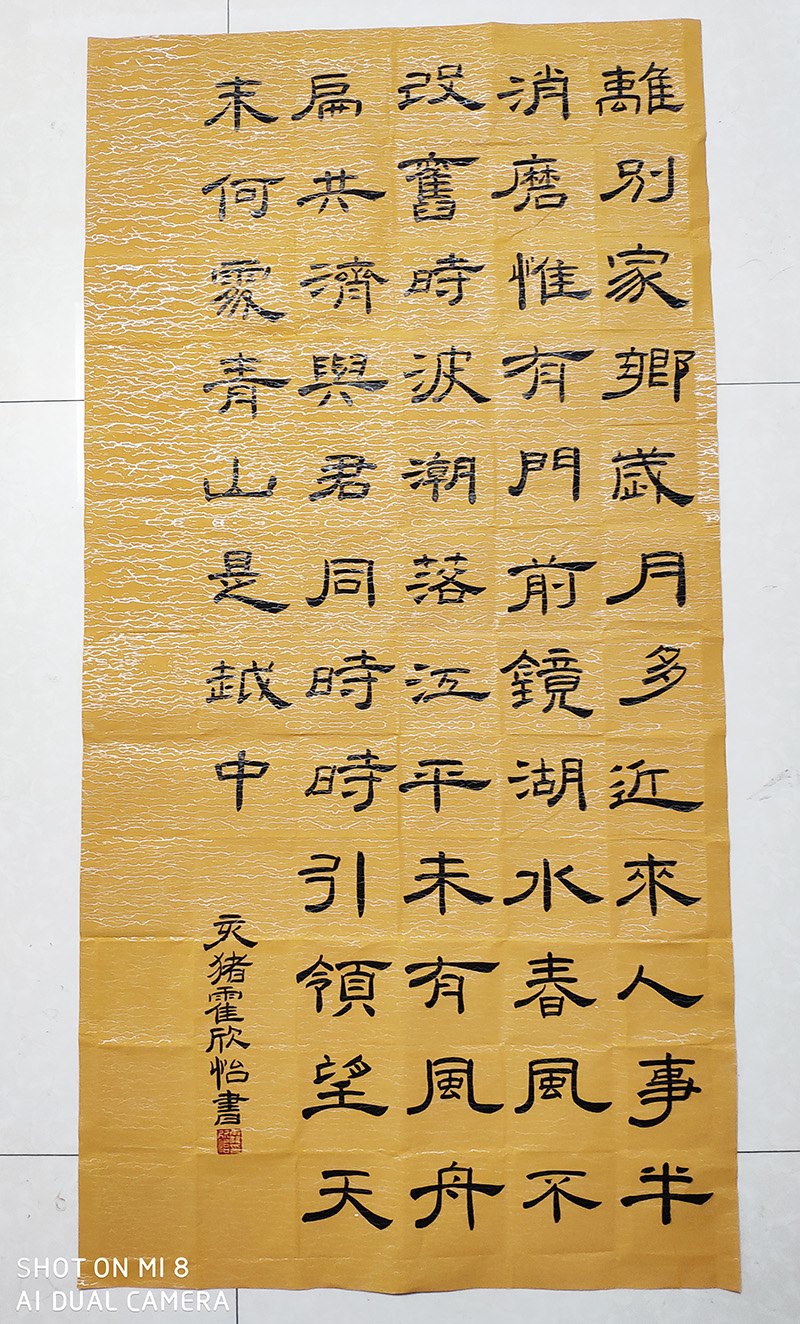 離別家鄉歲月多近來人事半
消磨惟有門前鏡湖水春風不
改舊時波潮落江平未有風舟
扁共濟與君同時時引領望天
末何處青山是越中
亥猪霍欣怡書
SHOT ON MI 8
AI DUAL CAMERA